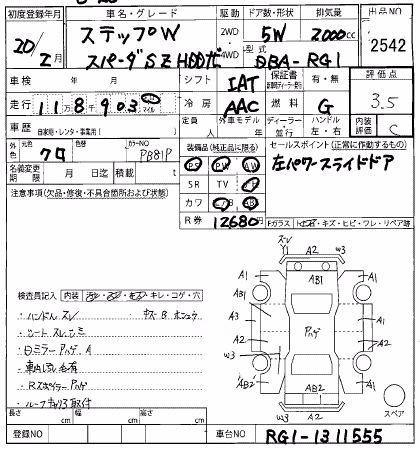 初度登録年月 車名・グレード 駆動 ドア数・形状 排気量 出品NO
20/2月 ステップW 2WD 4WD 5W 2000cc 2542
スパーダSZ HDDナビ 型式 DBA-RG1
車検 年 月 シフト IAT 保証書 有・無 評価点
走行 118903 km マイル 冷房 AAC 燃料 G 3.5
車歴 自家用・レンタ・事業用( ) 定員 人 外車モデル 年 ディーラー 並行 ハンドル 左・右 内装評価 C
外色 クロ 色替 カラーNO PB81P 装備品(純正品に限る) セールスポイント(正常に作動するもの)
名義変更期限 月 日迄 積載 t PS PW AW 左パワースライドドア
注意事項(欠品・修復・不具合箇所および状態) SR TV
カワ AB
R券 12680円 Fガラス キズ・ヒビ・ワレ・リペア跡
スレ A2 W3
検査員記入 内装 汚レ・スレ・キズ・キレ・コゲ・穴
A1 AB1 A1
・ハンドルスレ キズB ホシュウ AB1 A1
・シートスレ シミ A3 パハゲ A1
・Dミラーハゲ、A A2 A2
・車内汚レ有 W3
・Rスポイラーハゲ AB2 A1
・ルーフキャリア取付 AB2 A2 スペア
長さ cm 幅 cm 高さ cm
登録NO 車台NO RG1-1311555